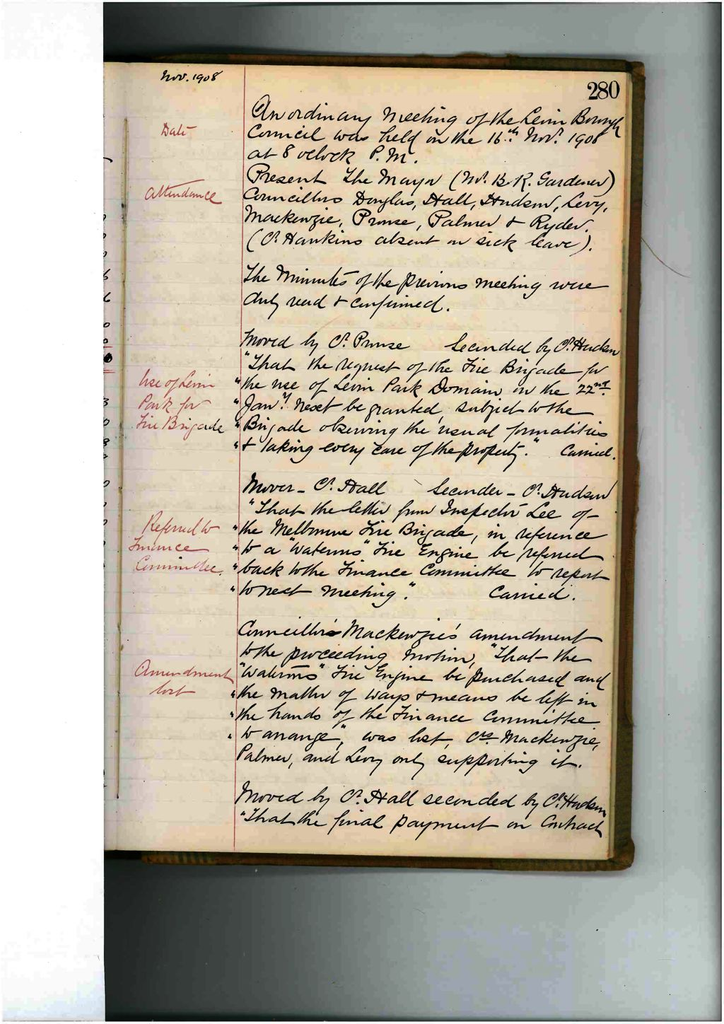 Nov. 1908
280
Date
An ordinary Meeting of the Levin Borough
Council was held on the 16th Nov. 1908
at 8 oclock P.M.
Attendance
Present The Mayor (Mr. B. R. Gardener)
Councillors Douglas, Hall, Hudson, Levy,
Mackenzie, Prouse, Palmer & Ryder.
(Cr. Hankins absent on sick leave).
The Minutes of the previous meeting were
duly read & confirmed.
Use of Levin
Park for
Fire Brigade
Moved by Cr. Prouse Seconded by Cr. Hudson
"That the request of the Fire Brigade for
"the use of Levin Park Domain, on the 22nd
"Jany. next be granted, subject to the
"Brigade observing the usual formalities
"& taking every care of the property." Carried.
Referred to
Finance
Committee.
Mover - Cr. Hall Seconder - Cr. Hudson
"That the letter from Inspector Lee of
"the Melbourne Fire Brigade, in reference
"to a "Waterous" Fire Engine be referred
"back to the Finance Committee to report
"to next meeting". Carried.
Amendment
lost
Councillor's Mackenzie's amendment
to the proceeding motion, "That the
"Waterous" Fire Engine be purchased and
"the matter of ways & means be left in
"the hands of the Finance Committee
"to arrange", was lost, Crs. Mackenzie,
Palmer, and Levy only supporting it.
Moved by Cr. Hall seconded by Cr. Hudson
"That the final payment on Contract